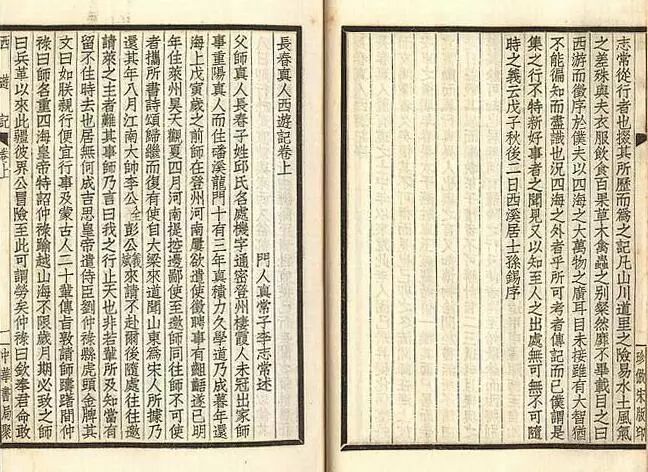 珍倣宋版印
志常從行者也掇其所歷而爲之記凡山川道里之險易水土風氣
之差殊與夫衣服飲食百果草木禽蟲之別粲然靡不畢載目之曰
西游而徵序於僕夫以四海之大萬物之廣耳目未接雖有大智猶
不能徧知而盡識也況四海之外者乎所可考者傳記而已僕謂是
集之行不特新好事者之聞見又以知至人之出處無可無不可隨
時之義云戊子秋後二日西溪居士孫錫序
長春真人西遊記卷上
門人真常子李志常述
父師真人長春子姓邱氏名處機字通密登州棲霞人未冠出家師
事重陽真人而住磻溪龍門十有三年真積力久學道乃成暮年還
海上戊寅歲之前師在登州河南屢欲遣使徵聘事有齟齬遂已明
年住萊州昊天觀夏四月河南提控邊鄙使至邀師同往師不可使
者攜所書詩頌歸繼而復有使自大梁來道聞山東爲宋人所據乃
還其年八月江南大帥李公全彭公義斌來請不赴爾後隨處往往邀
請萊之主者難其事師乃言曰我之行止天也非若輩所及知當有
留不住時去也居無何成吉思皇帝遣侍臣劉仲祿縣虎頭金牌其
文曰如朕親行便宜行事及蒙古人二十輩傳旨敦請師躊躇間仲
祿曰師名重四海皇帝特詔仲祿踰越山海不限歲月期必致之師
曰兵革以來此疆彼界公冒險至此可謂勞矣仲祿曰欽奉君命敢
西遊記 卷上 一 中華書局聚